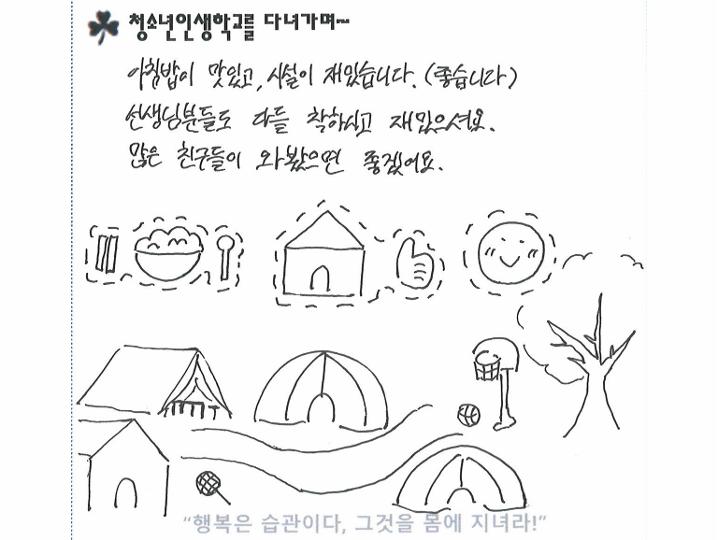 청소년인생학교를 다녀가며~
아침밥이 맛있고, 시설이 재밌습니다. (좋습니다)
선생님분들도 다들 착하시고 재밌으셔요.
많은 친구들이 와봤으면 좋겠어요.
"행복은 습관이다, 그것을 몸에 지녀라!"